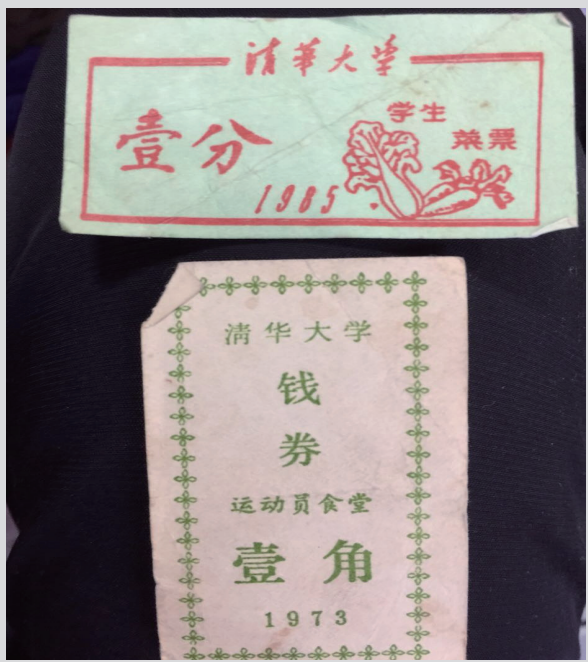 清華大学
学生
菜票
壹分
1985.
清华大学
钱
券
运动员食堂
壹角
1973